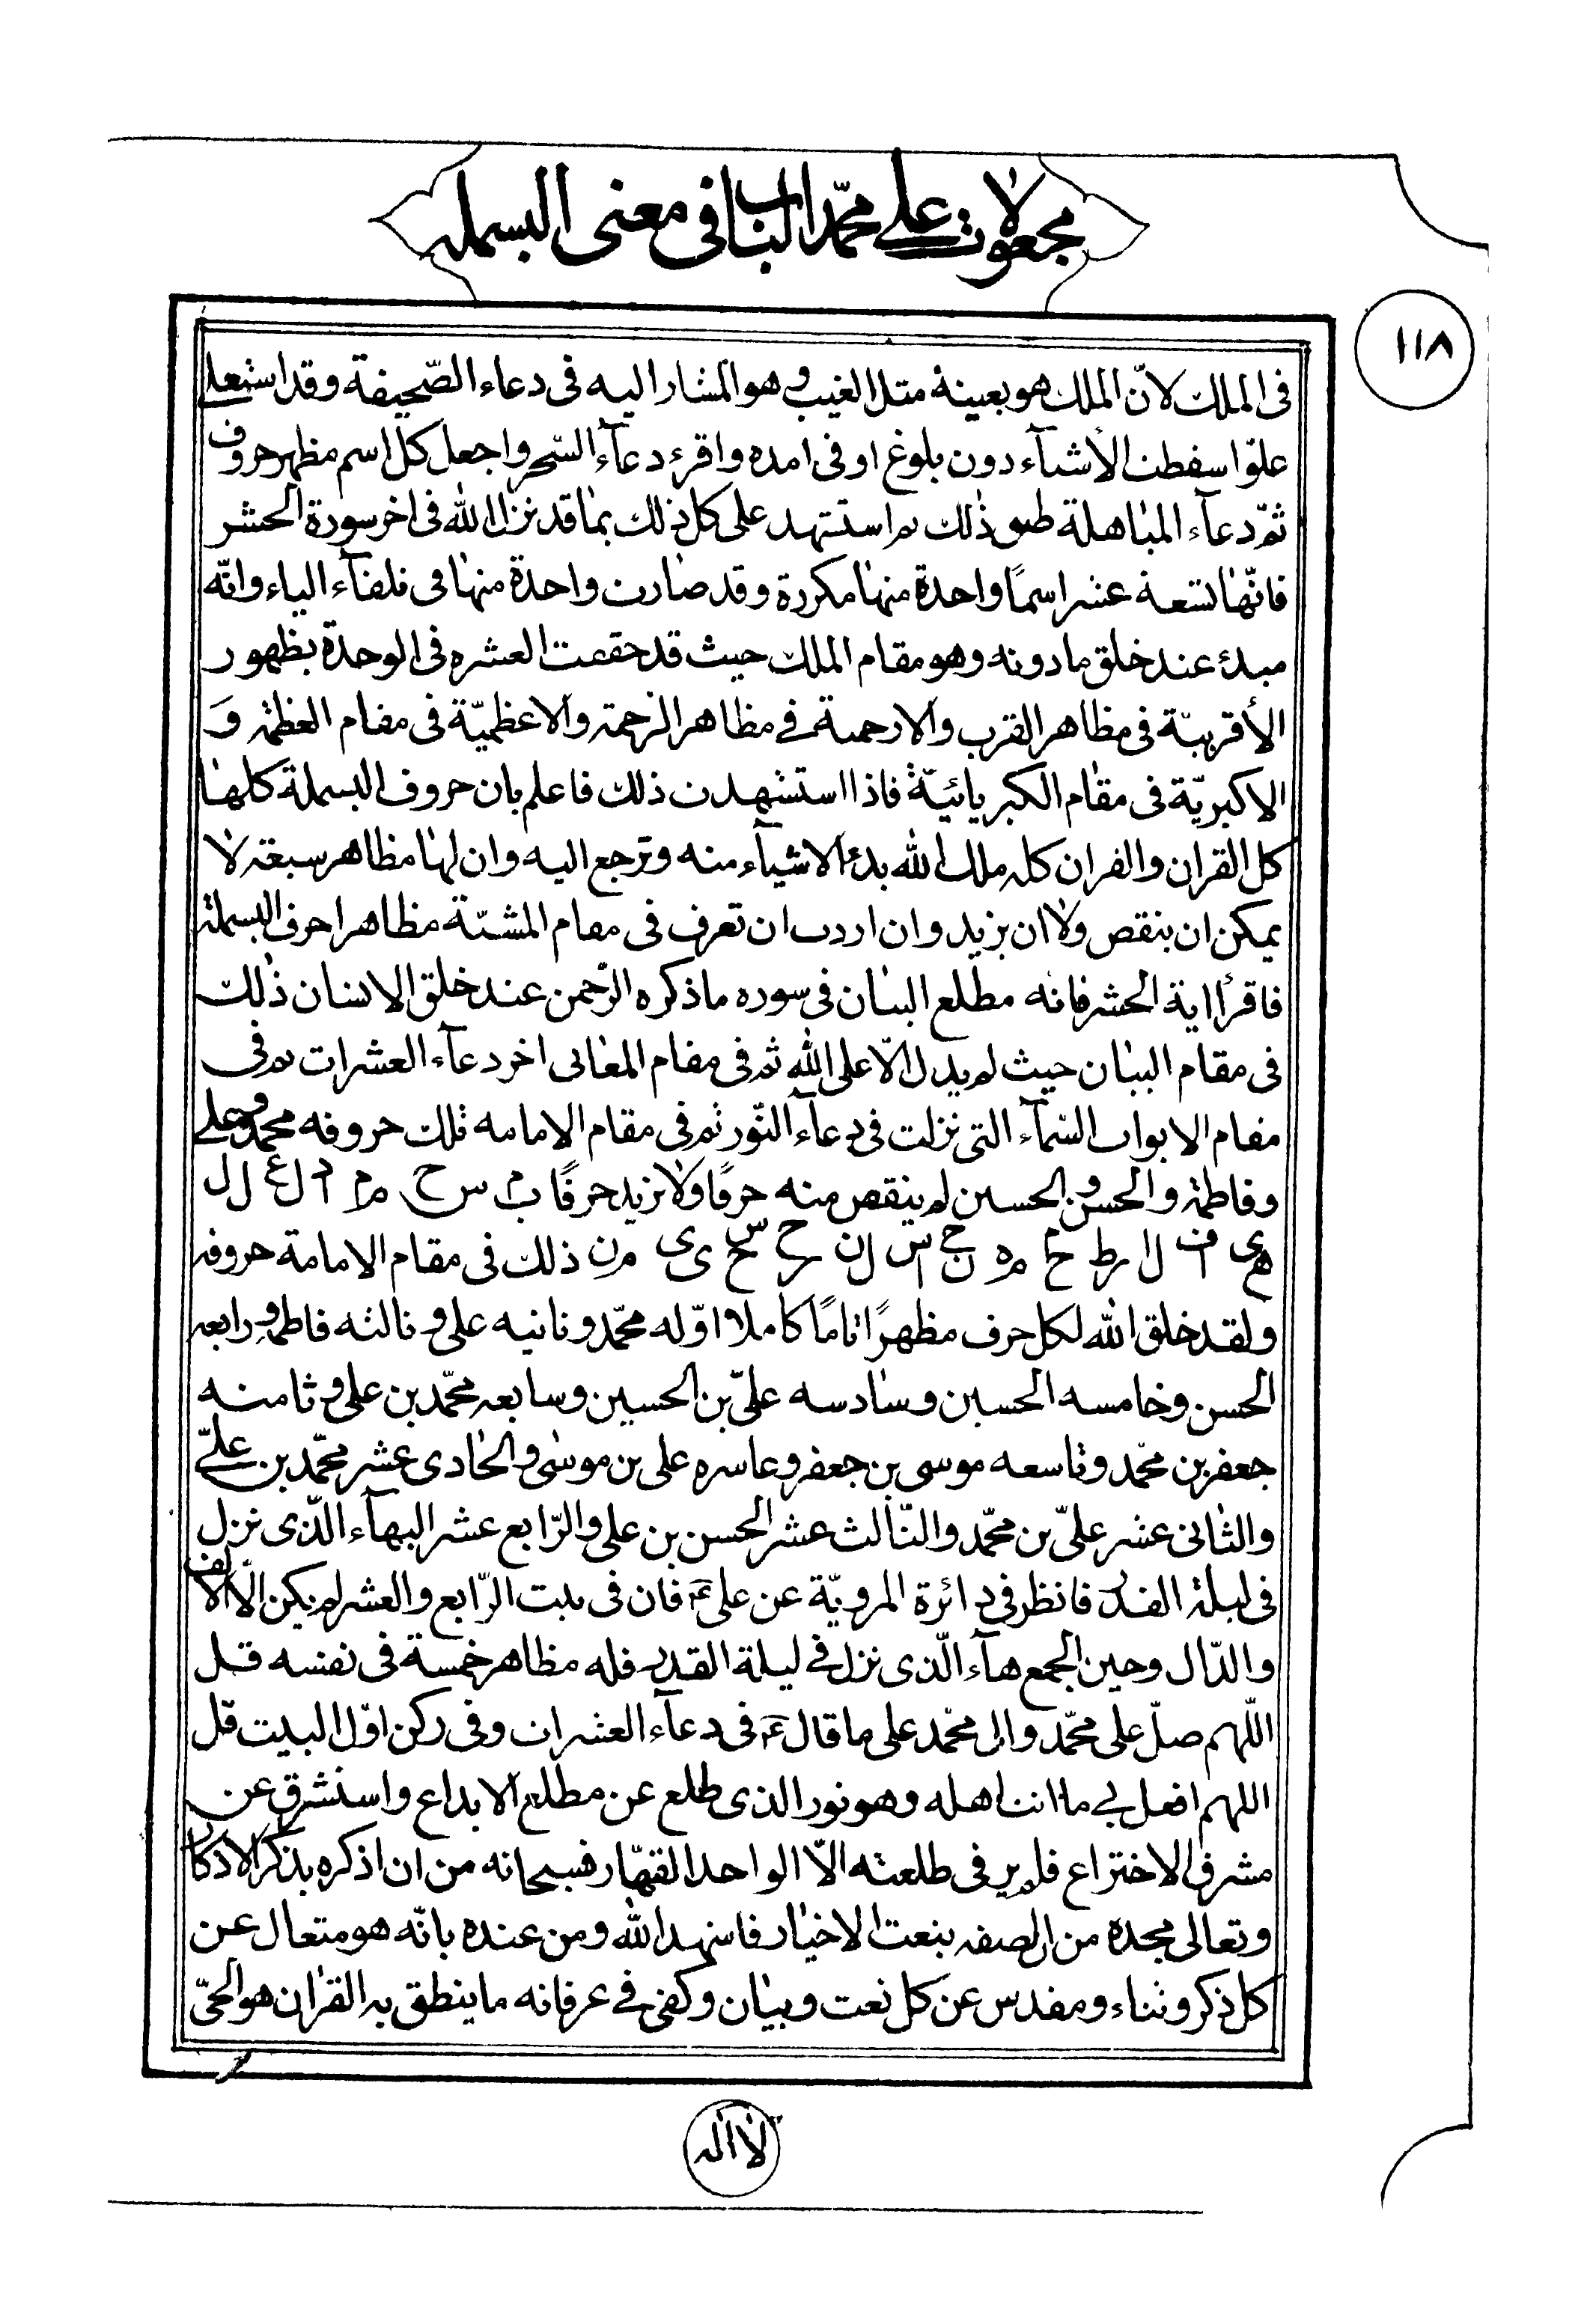 مجعولات علی محمّد الباب فی معنی البسمله
١١٨
فی الملک لانّ الملک هو بعینهٔ مثل الغیب و هو المشار الیه فی دعاء الصّحیفة و قد استعلی
علوّا سقطت الأشیآء دون بلوغ او فی امده و اقرء دعآء السّحر و اجعل کل اسم مظهر حروف
ثمّ دعآء المباهلة طبق ذٰلک ثم استشهد علی کل ذٰلک بما قد نزل الله فی اخر سورة الحشر
فانّها تسعة عشر اسمًا واحدة منها مکررة و قد صارت واحدة منها فی تلقآء الباء و انّه
مبدء عند خلق ما دونه و هو مقام الملک حیث قد حققت العشره فی الوحدة بظهور
الأقربیّة فی مظاهر القرب و الارحمیة فی مظاهر الرحمة و الاعظمیّة فی مقام العظمة وَ
الاکبریّة فی مقام الکبریائیّة فاذا استشهدت ذلک فاعلم بان حروف البسملة کلها
کل القران و القران کله ملک الله بدء الاشیآء منه و ترجع الیه و ان لها مظاهر سبعة لا
یمکن ان ینقص و لا ان یزید و ان اردت ان تعرف فی مقام المشیّة مظاهر احرف البسملة
فاقرأ ایة الحشر فانه مطلع البیان فی سوره ما ذکره الرّحمن عند خلق الانسان ذٰلک
فی مقام البیان حیث لم یدل الّا علی الله ثم فی مقام المعانی اخر دعآء العشرات ثم فی
مقام الابواب السّمآء التی نزلت فی دعآء النّور ثم فی مقام الامامه تلک حروفه محمد و علی
و فاطمة و الحسن و الحسین لم ینقص منه حرفًا و لا یزید حرفًا ب م س ح م م ا د ا ل ع ل ل
ه ی ا ف ل ا ر ط ح ا م ه ن ح ا س ل ن ر ح س ح ی ی م ن ذلک فی مقام الامامة حروفه
و لقد خلق الله لکل حرف مظهرًا تامًا کاملا اوّله محمّد و ثانیه علی و ثالثه فاطمة و رابعه
الحسن و خامسه الحسین و سادسه علیّ بن الحسین و سابعه محمّد بن علی و ثامنه
جعفر بن محمّد و تاسعه موسی بن جعفر و عاشره علی بن موسٰی و الحادی عشر محمّد بن علیّ
و الثانی عشر علیّ بن محمّد و الثّالث عشر الحسن بن علی و الرّابع عشر البهآء الّذی نزل
فی لیلة القدر فانظر فی دائرة المرویّة عن علی ع فان فی بیت الرّابع و العشر لم یکن الّا الالف
و الدّال و حین الجمع هآء الّذی نزل فی لیلة القدر فله مظاهر خمسة فی نفسه قل
اللّهم صلّ علی محمّد و ال محمّد علی ما قال ع فی دعآء العشرات و فی رکن اوّل البیت قل
اللهم افعل بی ما انت اهله و هو نور الذی طلع عن مطلع الابداع و استشرق عن
مشرق الاختراع فلم یر فی طلعته الّا الواحد القهّار فسبحانه من ان اذکره بذکر الاذکار
و تعالی مجده من ان اصفه بنعت الاخیار فاشهد الله و من عنده بانّه هو متعال عن
کل ذکر و ثناء و مقدس عن کل نعت و بیان و کفی فی عرفانه ما ینطق به القران هو الحیّ
لا اله